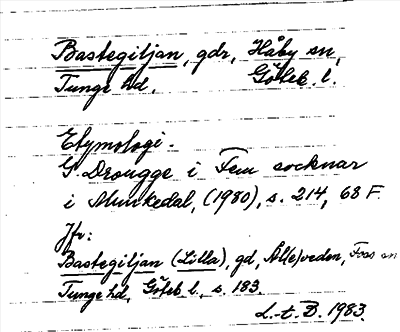 Bastegiljan, gdr, Håby sn,
Tunge hd, Göteb. l.
Etymologi.
G. Drougge i Fem socknar
i Munkedal, (1980), s. 214, 68 F.
Jfr:
Bastegiljan (Lilla), gd, Äl(e)veden, Foss sn
Tunge hd, Göteb l., s. 183.
L.-t. D. 1983.